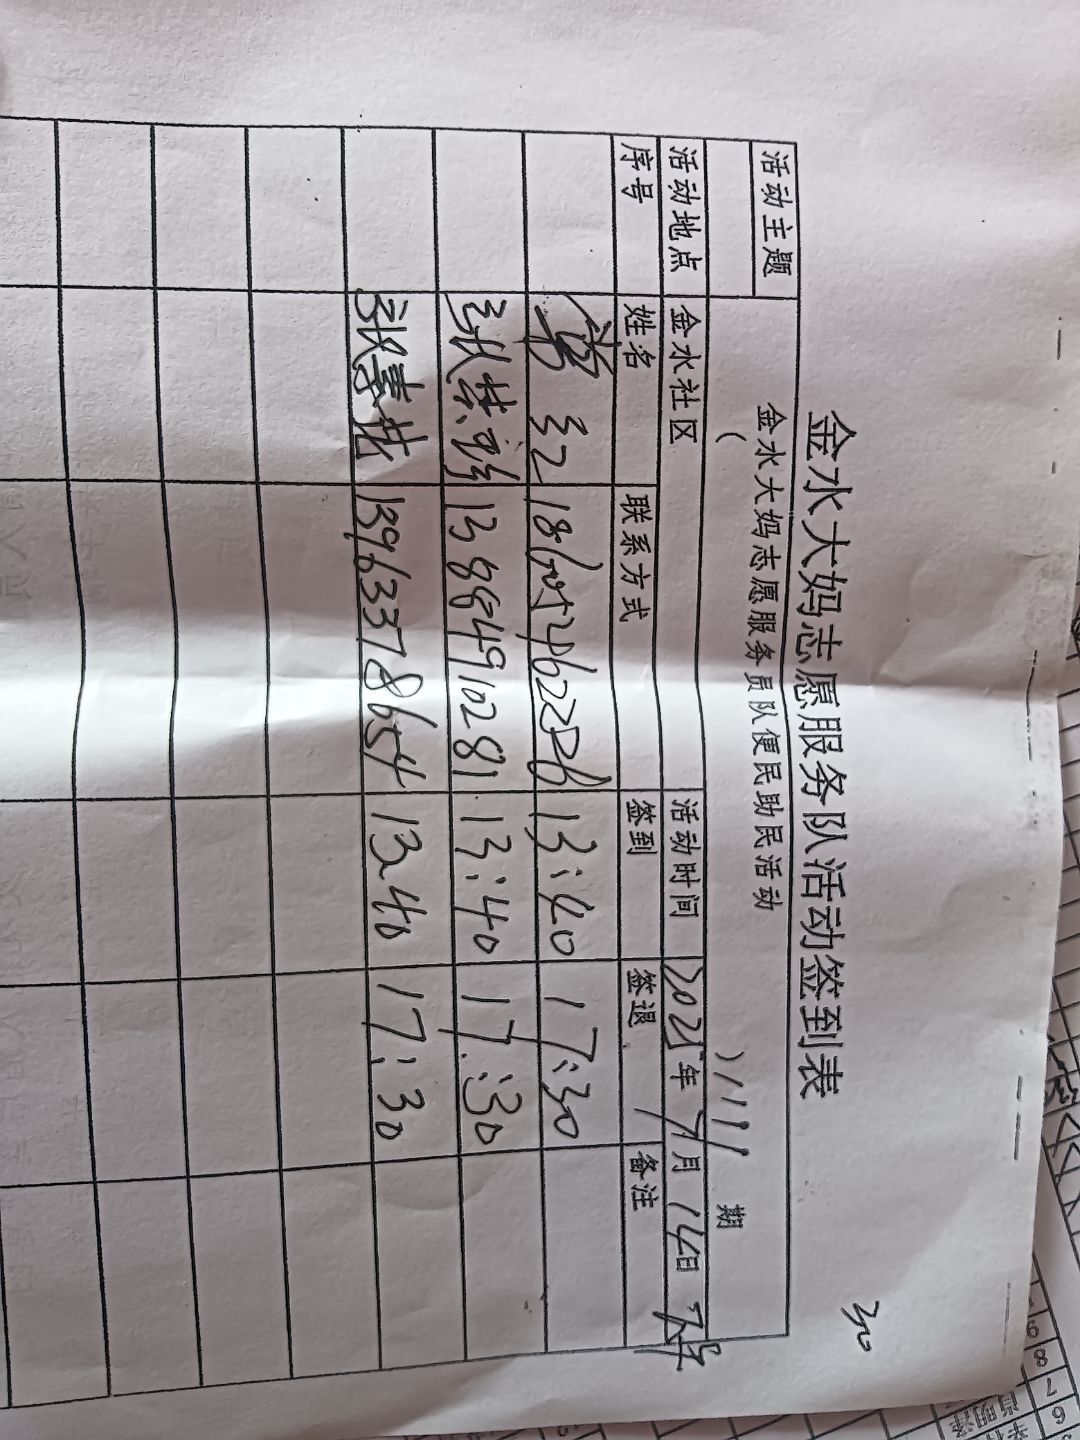 30
金水大妈志愿服务队活动签到表
活动主题 金水大妈志愿服务员队便民助民活动
( ) 1111 期
活动地点 金水社区 活动时间 2021年7月14日 下午
序号 姓名 联系方式 签到 签退 备注
13:40 17:30
张 珍 13884910281 13:40 17:30
张喜 13963378654 13:40 17:30